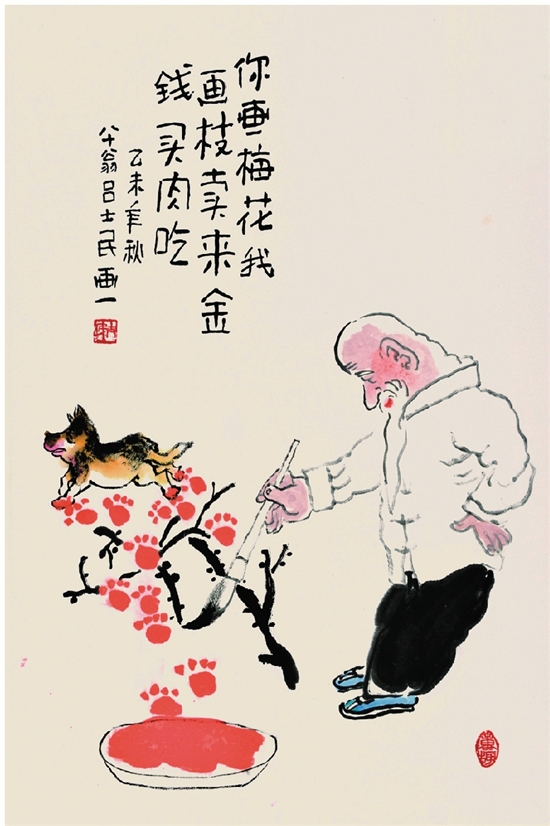 你画梅花我
画枝卖来金
钱买肉吃
乙未年秋
八十翁吕士民画一